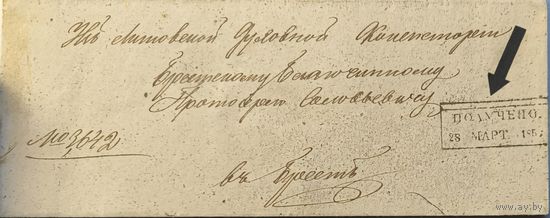 Изъ Литовской Духовной Консисторіи
Брестскому Благочинному
Протоіерею Соловьевичу
ПОЛУЧЕНО.
28 МАРТ. 185
№ 3,642
въ Брестѣ
www.ay.by